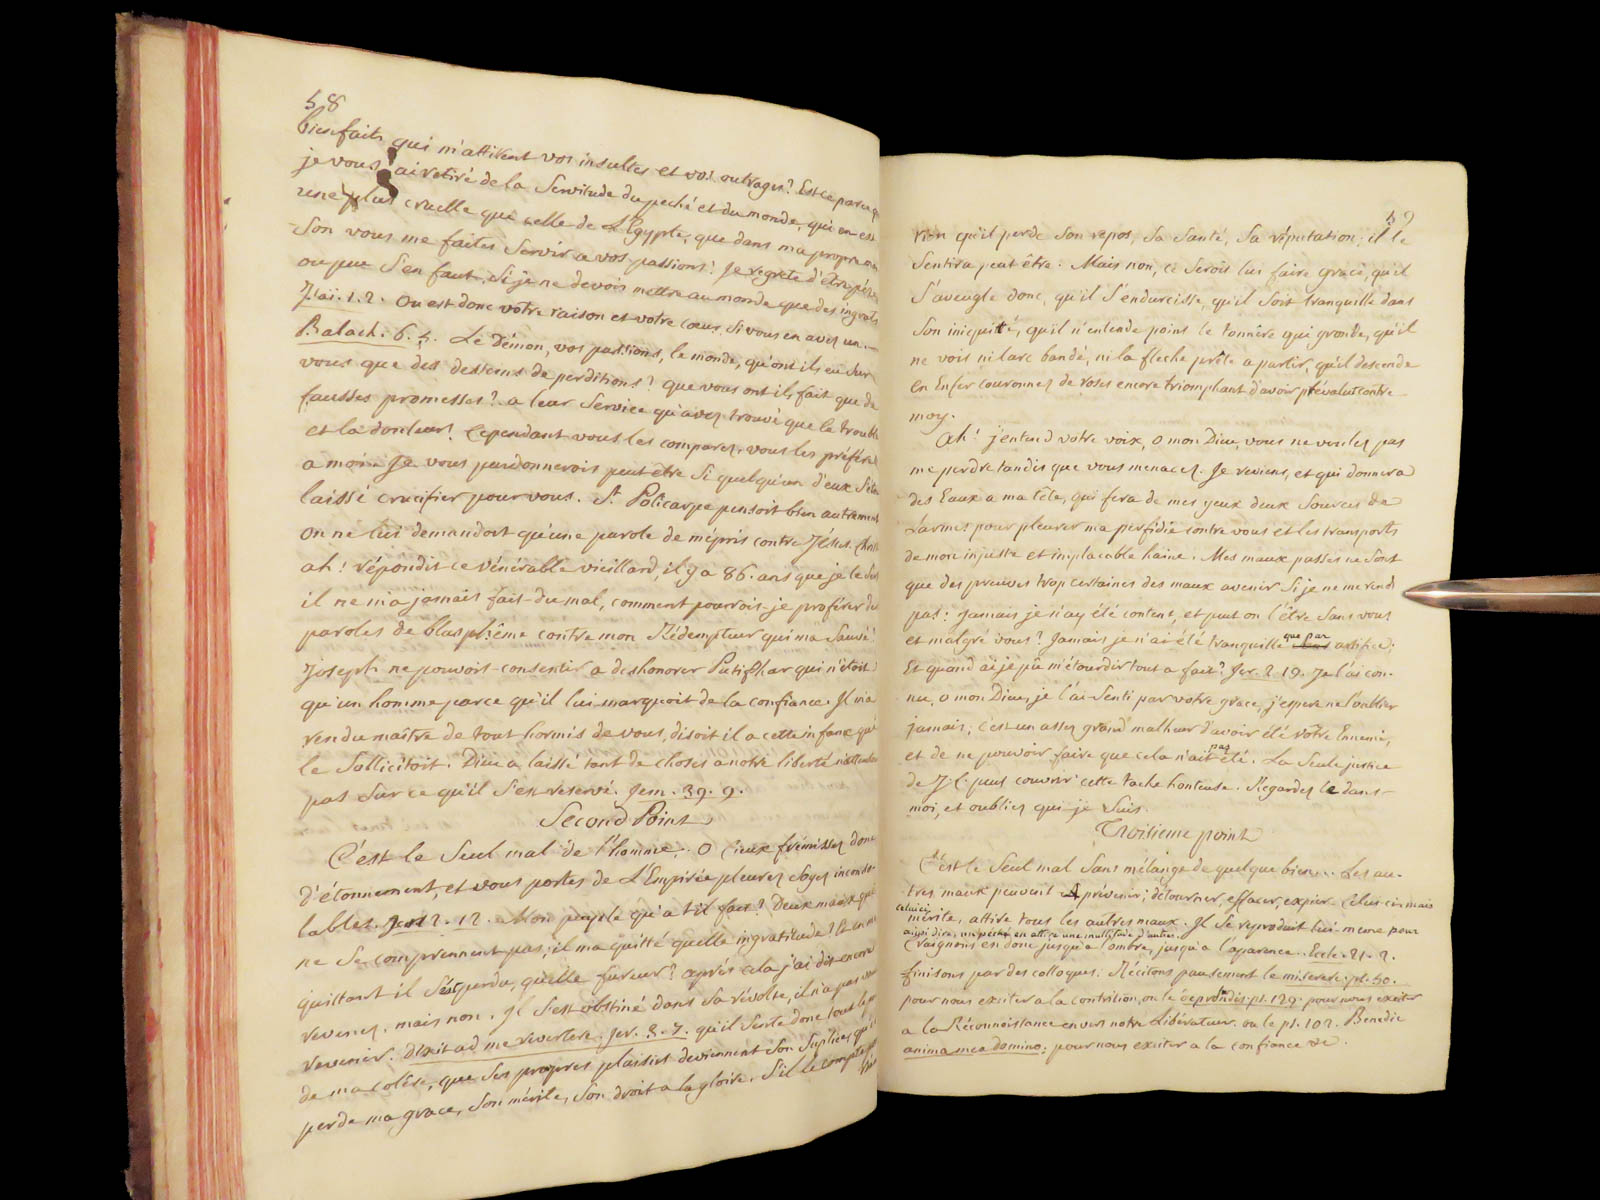 58
bienfaits qui m'attirent vos insultes et vos outrages? Est ce parce q
je vous ai retiré de la Servitude du peché et du monde, qui en est
une plus cruelle que celle de L'Egypte, que dans ma propre mai
son vous me faites Servir a vos passions? Je regrete d'être père
ou peu S'en faut, Si je ne devois mettre au monde que des ingrats
Isaï. 1. 2. Ou est donc votre raison et votre cœur, Si vous en avez un.
Balach. 6. 5. Le Démon, vos passions, le monde, qu'ont ils eu Sur
vous que des desseins de perditions? que vous ont ils fait que de
fausses promesses? a leur Service qu'avez trouvé que le trouble
et la douleur? Cependant vous les comparez, vous les préféré
a moi. Je vous pardonnerois peut être Si quelqu'un d'eux S'étoi
laissé crucifier pour vous. St Policarpe pensoit bien autrement
On ne lui demandoit qu'une parole de mépris contre Jésus Christ
ah! répondit ce vénérable vieillard, il y a 86. ans que je le Sers
il ne m'a jamais fait du mal, comment pourrois-je proférer de
paroles de blasphême contre mon Rédempteur qui m'a Sauvé?
Joseph ne pouvoit consentir a deshonorer Putiphar qui n'étoit
qu'un homme parce qu'il lui marquoit de la confiance Il m'a
rendu maître de tout hormis de vous, disoit il a cette infame qui
le Sollicitoit. Dieu a laissé tant de choses a notre liberté n'attentons
pas Sur ce qu'il S'est reservé. Jen. 39. 9.
Second Point
C'est le Seul mal de l'homme. O Cieux frémissez donc
d'étonnement, et vous portes de L'Empirée pleurez Soyez inconso-
lables. Jer 2. 12. Mon peuple qu'a t'il fait? Deux maux qui
ne Se comprennent pas; il m'a quitté quelle ingratitude! Et en me
quittant il S'est perdu, quelle fureur! après cela j'ai dit encore
revenez. mais non. Il S'est obstiné dans Sa révolte, il n'a pas
revenir. Dixit ad me revertere. Jer. 3. 7. qu'il Sente donc tout le
de ma colère, que Ses propres plaisirs deviennent Son Suplice, qu'il
perde ma grace, Son mérite, Son droit a la gloire. S'il le compte pour
59
rien qu'il perde Son repos, Sa Santé, Sa réputation; il le
Sentira peut être. Mais non, ce Seroit lui faire grace, qu'il
S'aveugle donc, qu'il S'endurcisse, qu'il Soit tranquille dans
Son iniquité, qu'il n'entende point le tonnère qui gronde, qu'il
ne vois ni l'arc bandé, ni la fleche prête a partir, qu'il descende
en Enfer couronnez de roses encore triomphant d'avoir prévalut contre
moy.
Ah! j'entend votre voix, o mon Dieu, vous ne voulez pas
me perdre tandis que vous menacez. Je reviens, et qui donnera
des Eaux a ma tête, qui fera de mes yeux deux Sources de
Larmes pour pleurer ma perfidie contre vous et les transports
de mon injuste et implacable haine. Mes maux passés ne Sont
que des preuves trop certaines des maux avenir Si je ne me rend
pas: Jamais je n'ay été content, et peut on l'être Sans vous
et malgré vous? Jamais je n'ai été tranquille que par artifice;
Et quand ai je pû m'étourdir tout a fait? Jer. 2 19. Je l'ai con-
nu, o mon Dieu, je l'ai Senti par votre grace, j'espere ne l'oublier
jamais; c'est un assez grand malheur d'avoir été vôtre Ennemie,
et de ne pouvoir faire que cela n'ait pas été. La Seule justice
de J. C. peut couvrir cette tache honteuse. Regardez le dans-
moi, et oubliez qui je Suis.
Troisieme point
C'est le Seul mal Sans mélange de quelque bien... Les au-
tres maux peuvent prévenir; détourner, effacer, expier Celus-ci mais
celuici
mérite, attire tous les autres maux. Il Se reproduit lui-meme pour
ainsi dire, un peché en attire une multitude d'autres.
Craignons en donc jusqu'a l'ombre, jusqu'a l'aparence.. Eccle. 21. 2.
finisons par des colloques. Récitons pausement le miserere. ps. 50.
pour nous exciter a la contrition, ou le deprofondis. ps. 129. pour nous exciter
a la Réconnoistance envers notre Libérateur. ou le ps. 102. Benedic
anima mea domino: pour nous exciter a la confiance &c.